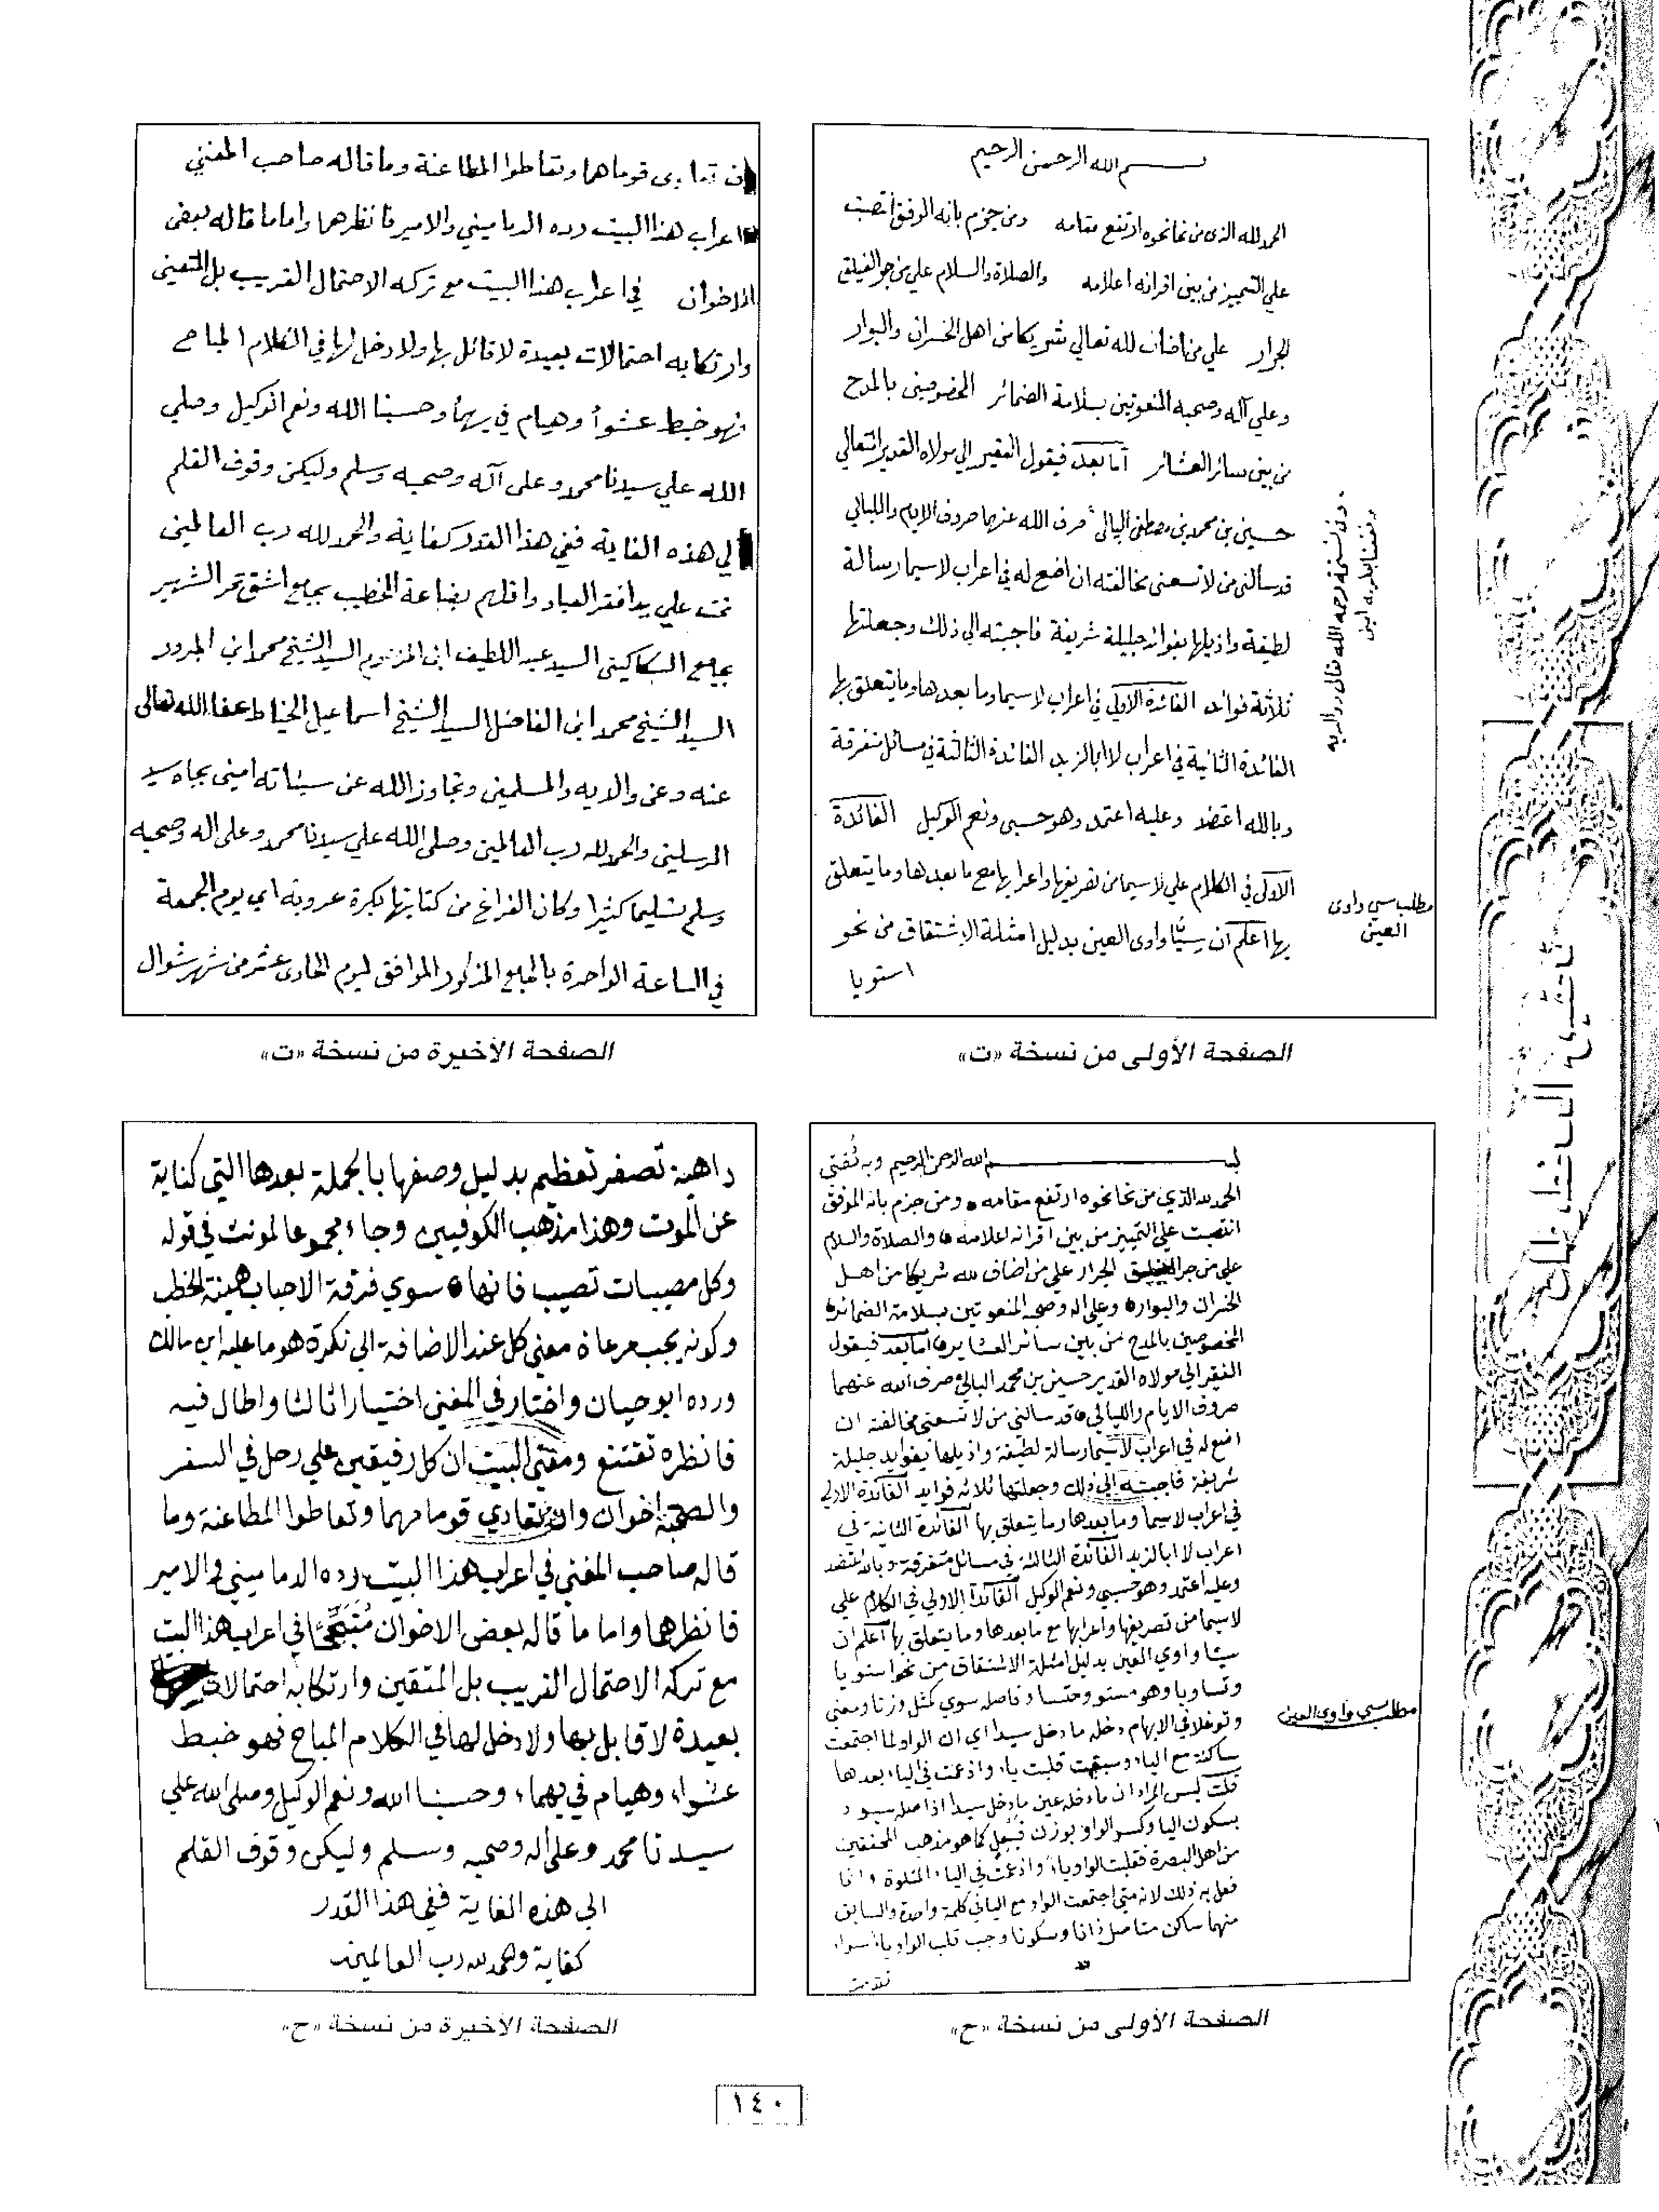 بسم الله الرحمن الرحيم
الحمد لله الذي من نحا نحوه ارتفع مقامه ومن جزم بانه الموفق انتصبت
علي التمييز من بين اقرانه اعلامه والصلاة والسلام علي من جر الفيلق
الجرار علي من اضاف لله تعالي شريكا من اهل الخسران والبوار
وعلي آله وصحبه المنعوتين بسلامة الضمائر المخصوصين بالمدح
من بين سائر العشائر أما بعد فيقول الفقير الي مولاه القدير المتعالي
حسين بن محمد بن مصطفى البالي صرف الله عنهما صروف الايام والليالي
قد سالني من لا تسعني مخالفته ان اضع له في اعراب لاسيما رسالة
لطيفة واذيلها بفوائد جليلة شريفة فاجبته الي ذلك وجعلتها
ثلاثة فوائد الفائدة الاولي في اعراب لاسيما وما بعدها وما يتعلق بها
الفائدة الثانية في اعراب لا ابا لزيد الفائدة الثالثة في مسائل متفرقة
وبالله اعتضد وعليه اعتمد وهو حسبي ونعم الوكيل الفائدة
الاولى في الكلام علي لاسيما من تصريفها واعرابها مع ما بعدها وما يتعلق
بها اعلم ان سيّا واوى العين بدليل امثلة الاشتقاق من نحو
استويا
مطلب سي واوى
العين
الصفحة الأولى من نسخة «ت»
ان تعادى قوماهما وتعاطوا المطاعنة وما قاله صاحب المغني
اعراب هذا البيت رده الدماميني والامير فانظرهما واما ما قاله بعض
الاخوان في اعراب هذا البيت مع تركه الاحتمال القريب بل المتعين
وارتكابه احتمالات بعيدة لا قائل بها ولا دخل لها في الكلام المباح
فهو خبط عشوأ وهيام في يهمأ وحسبنا الله ونعم الوكيل وصلي
الله علي سيدنا محمد وعلى آله وصحبه وسلم وليكن وقوف القلم
لي هذه الغاية ففي هذا القدر كفاية والحمد لله رب العالمين
تمت علي يد افقر العباد واقلهم بضاعة الخطيب بجامع اشقتمر الشهير
بجامع السكاكيني السيد عبد اللطيف ابن المرحوم السيد الشيخ محمد ابن المرحوم
السيد الشيخ محمد ابن الفاضل السيد الشيخ اسماعيل الخياط عفا الله تعالى
عنه وعن والديه والمسلمين وتجاوز الله عن سيئاته امين بجاه سيد
المرسلين والحمد لله رب العالمين وصلى الله علي سيدنا محمد وعلى اله وصحبه
وسلم تسليما كثيرا وكان الفراغ من كتابتها بكرة عروبة اي يوم الجمعة
في الساعة الواحدة بالجامع المذكور الموافق ليوم الحادى عشر من شهر شوال
الصفحة الأخيرة من نسخة «ت»
بسم الله الرحمن الرحيم وبه ثقتي
الحمد لله الذي من نحا نحوه ارتفع مقامه ومن جزم بانه الموفق
انتصبت علي التمييز من بين اقرانه اعلامه والصلاة والسلام
علي من جر الفيلق الجرار علي من اضاف لله شريكا من اهل
الخسران والبوار وعلي اله وصحبه المنعوتين بسلامة الضمائر
المخصوصين بالمدح من بين سائر العشاير اما بعد فيقول
الفقير الي مولاه القدير حسين بن محمد البالي صرف الله عنهما
صروف الايام والليالي قد سالني من لا تسعني مخالفته ان
اضع له في اعراب لاسيما رسالة لطيفة واذيلها بفوايد جليلة
شريفة فاجبته الي ذلك وجعلتها ثلاثة فوايد الفائدة الاولي
في اعراب لاسيما وما بعدها وما يتعلق بها الفائدة الثانية في
اعراب لا ابا لزيد الفائدة الثالثة في مسائل متفرقة وبالله اعتضد
وعليه اعتمد وهو حسبي ونعم الوكيل الفائدة الاولي في الكلام علي
لاسيما من تصريفها واعرابها مع ما بعدها وما يتعلق بها اعلم ان
سيّا واوي العين بدليل امثلة الاشتقاق من نحو استويا
وتساويا وهو مستو وحتسا وفاصله سوي كمثل وزنا ومعنى
وتوغلا في الابهام دخله ما دخل سيدا اي ان الواو لما اجتمعت
ساكنة مع الياء وسبقت قلبت ياء وادغمت في الياء بعدها
قلت ليس المراد ان ما دخله عين ما دخل سيدا اذ اصله سيود
بسكون اليا وكسر الواو بوزن فيعل كما هو مذهب المحققين
من اهل البصرة فقلبت الواو ياء وادغمت في الياء المتلوة وانما
فعل به ذلك لانه متى اجتمعت الواو مع اليا في كلمة واحدة والسابق
منهما ساكن متاصل ذاتا وسكونا وجب قلب الواو ياء سواء
تقدمت
مطلب سي واوى العين
الصفحة الأولى من نسخة «ح»
داهية تصغر تعظيم بدليل وصفها بالجملة بعدها التي كناية
عن الموت وهذا مذهب الكوفيين وجاء مجموعا لمونث في قوله
وكل مصيبات تصيب فانها سوي فرقة الاحباب هينة الخطب
وكونه يجب مرعاة معني كل عند الاضافة الي نكرة هو ما عليه ابن مالك
ورده ابو حيان واختار في المغني اختيارا ثالثا واطال فيه
فانظره تقتنع ومعني البيت ان كل رفيقين علي رحل في السفر
والصحبة اخوان وان تعادي قوما مهما وتعاطوا المطاعنة وما
قاله صاحب المغني في اعراب هذا البيت رده الدماميني والامير
فانظرهما واما ما قاله بعض الاخوان مُتَبَجِّحًا في اعراب هذا البيت
مع تركه الاحتمال القريب بل المتقين وارتكابه احتمالات
بعيدة لا قايل بها ولا دخل لها في الكلام المباح فهو خبط
عشواء وهيام في يهماء وحسبنا الله ونعم الوكيل وصلى الله علي
سيدنا محمد وعلى اله وصحبه وسلم وليكن وقوف القلم
الى هذه الغاية ففي هذا القدر
كفاية والحمد لله رب العالمين
الصفحة الأخيرة من نسخة «ح»
١٤٠